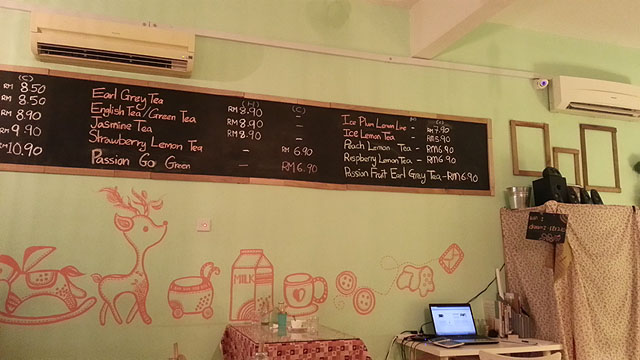 (C)
RM 8.50
RM 8.50
RM 8.90
RM 9.90
RM10.90
(H) (C)
Earl Grey Tea RM 8.90 -
English Tea/Green Tea RM 8.90 -
Jasmine Tea RM 8.90 -
Strawberry Lemon Tea - RM 6.90
Passion Go Green - RM 6.90
Ice Plum Lemon Lime - RM 7.90
Ice Lemon Tea - RM 5.90
Peach Lemon Tea - RM 6.90
Raspberry Lemon Tea - RM 6.90
Passion Fruit Earl Grey Tea - RM 6.90
MILK